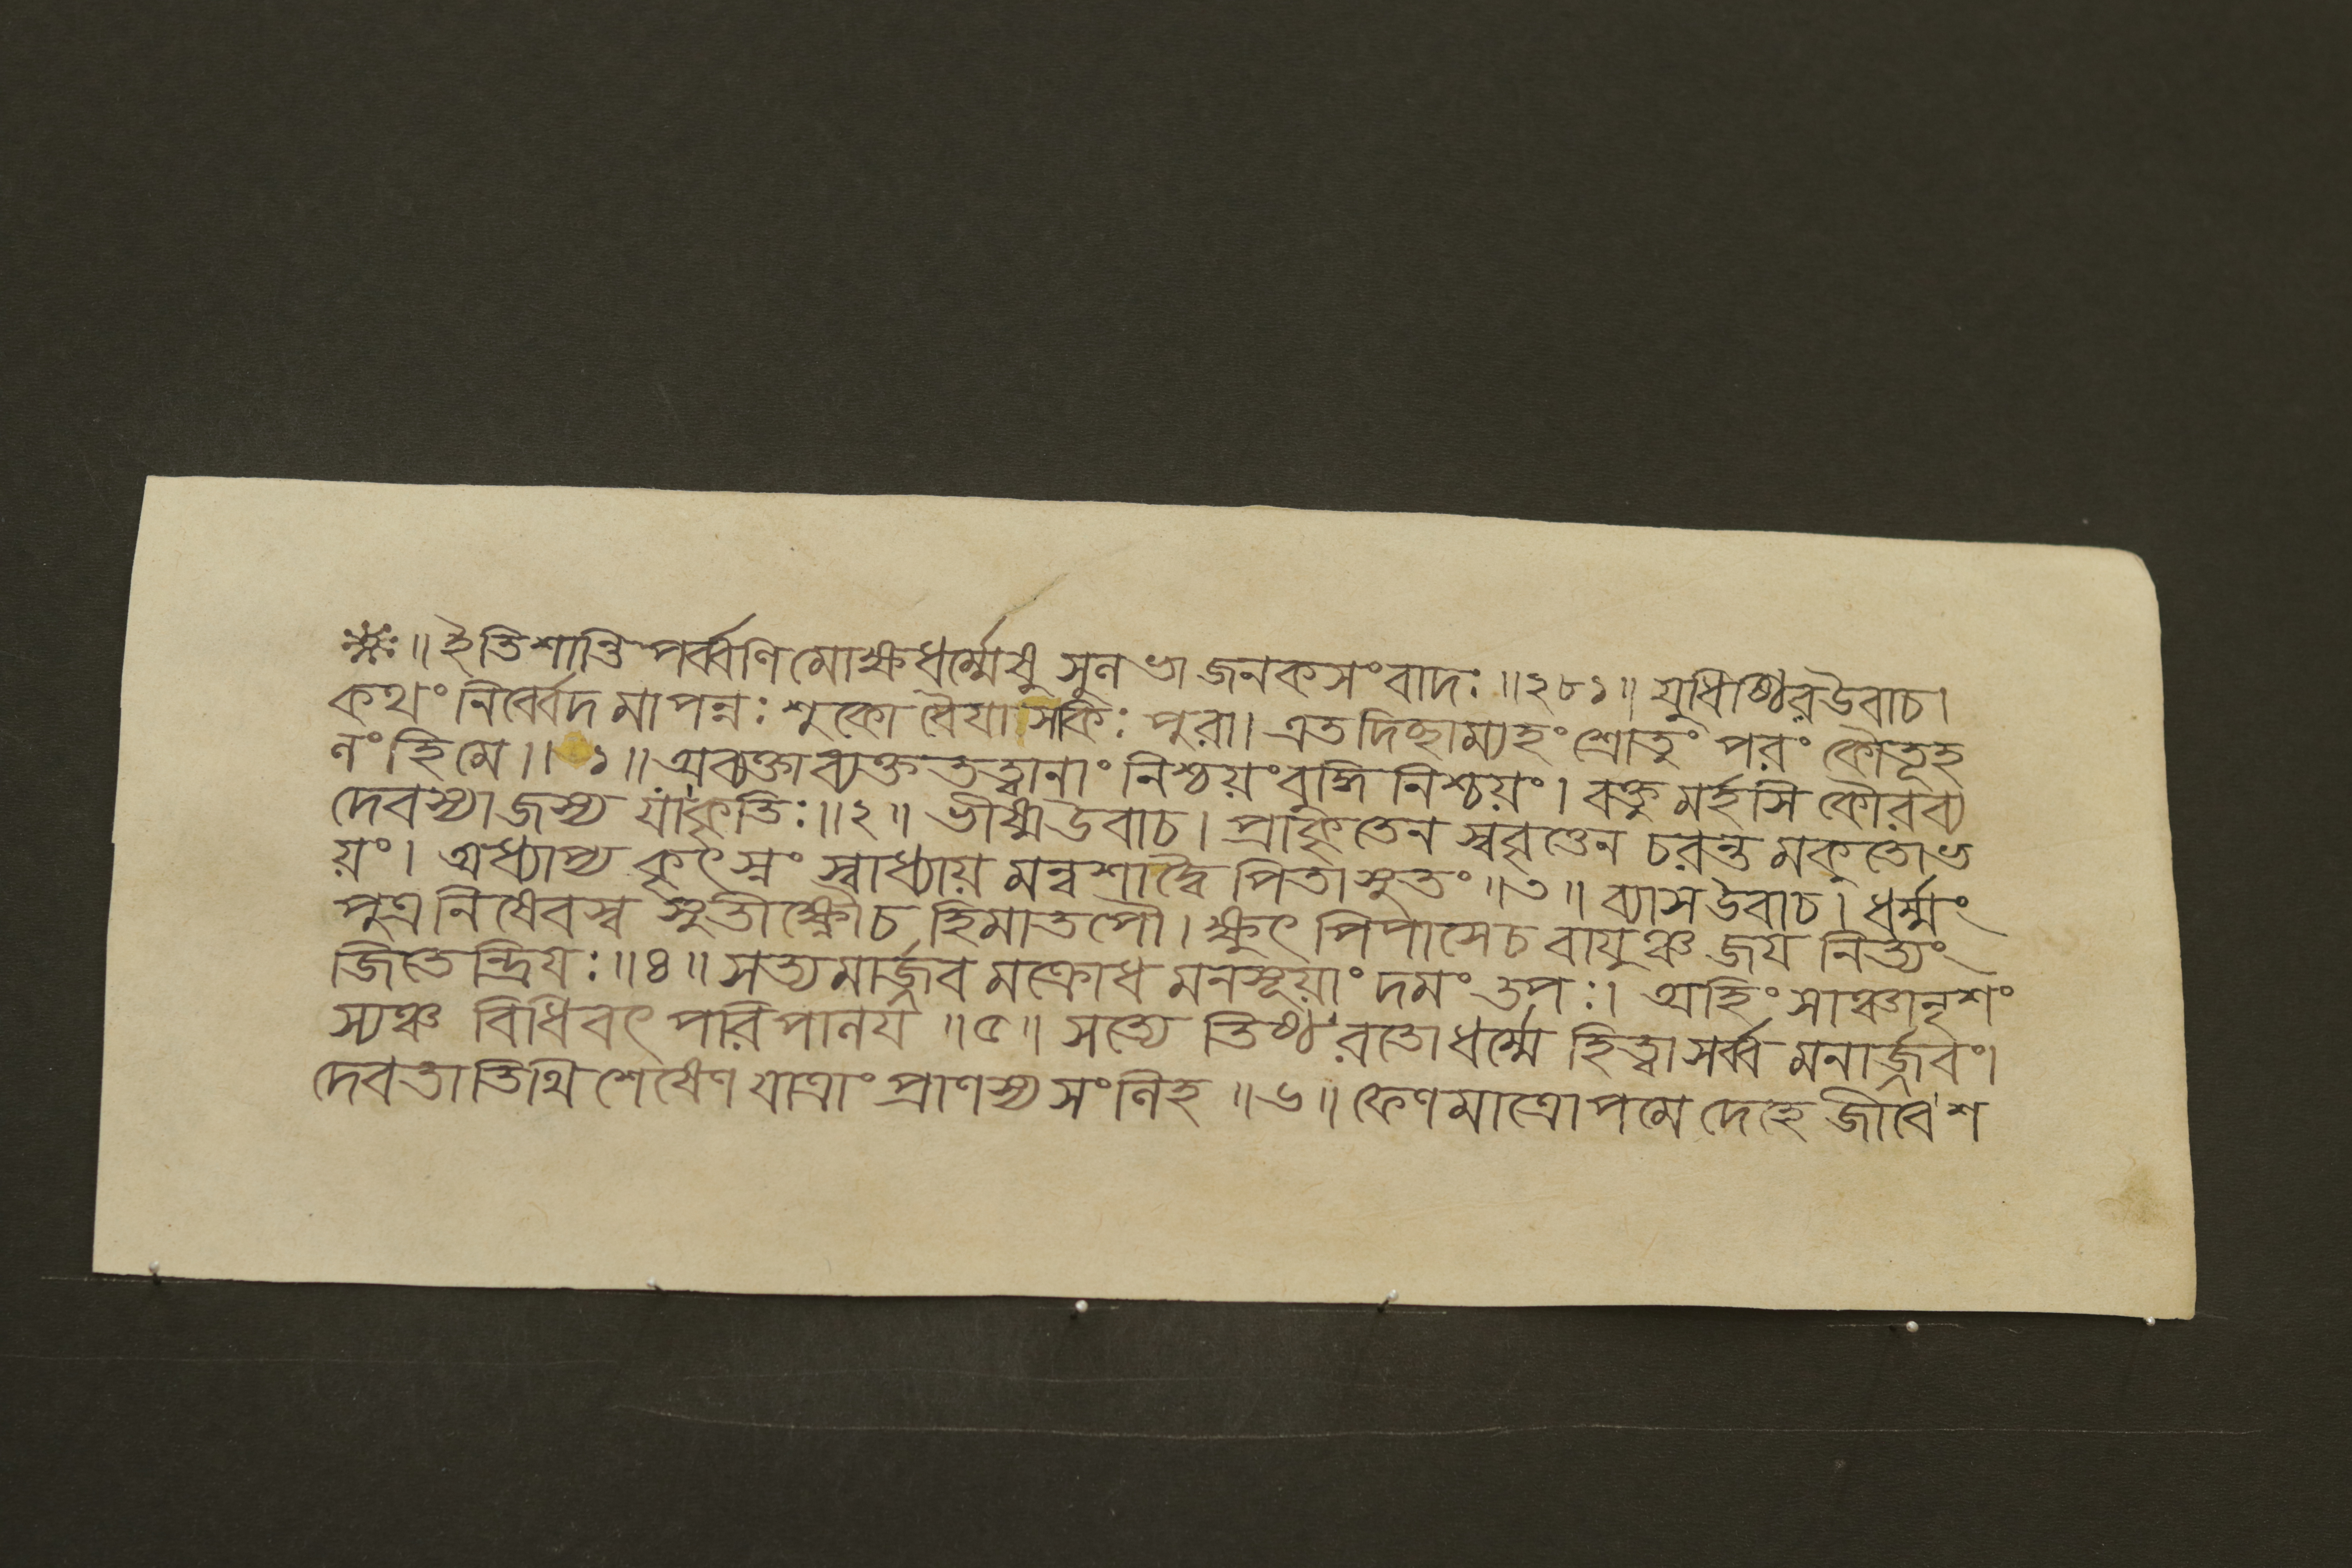 ॥ ইতিশান্তিপর্ব্বণিমোক্ষধর্ম্মেষু সুনভাজনকসংবাদঃ ॥২৮১॥ যুধিষ্ঠিরউবাচ।
কথং নির্ব্বেদমাপন্নঃ শুকো বৈয়াসকিঃ পুরা। এতদিচ্ছাম্যহং শ্রোতুং পরং কৌতূহ
নং হি মে॥ ১॥ অব্যক্তাব্যক্ততত্ত্বানাং নিশ্চয়ংবুদ্ধিনিশ্চয়ং। বক্তুমর্হসি কৌরব্য
দেবস্যাজস্য যাকৃতিঃ॥২॥ ভীষ্মউবাচ। প্রাকৃতেন স্ববৃত্তেন চরন্তমকুতোভ
য়ং। অধ্যাপ্য কৃৎস্নং স্বাধ্যায়মন্বশাদ্বৈ পিতাসুতং॥৩॥ ব্যাসউবাচ। ধর্ম্মং
পুত্রনিষেবস্ব সুতীক্ষ্ণৌচ হিমাতপৌ। ক্ষুৎপিপাসেচ বায়ুঞ্চ জয় নিত্যং
জিতেন্দ্রিয়ঃ॥৪॥ সত্যমার্জ্জবমক্রোধমনসূয়াং দমং তপঃ। অহিংসাঞ্চানৃশং
স্যঞ্চ বিধিবৎ পরিপানয় ॥৫॥ সত্যে তিষ্ঠ রতোধর্ম্মে হিত্বাসর্ব্বমনার্জ্জবং।
দেবতাতিথিশেষেণ যাত্রাং প্রাণস্য সংনিহ ॥৬॥ ফেণমাত্রোপমে দেহে জীবেশ